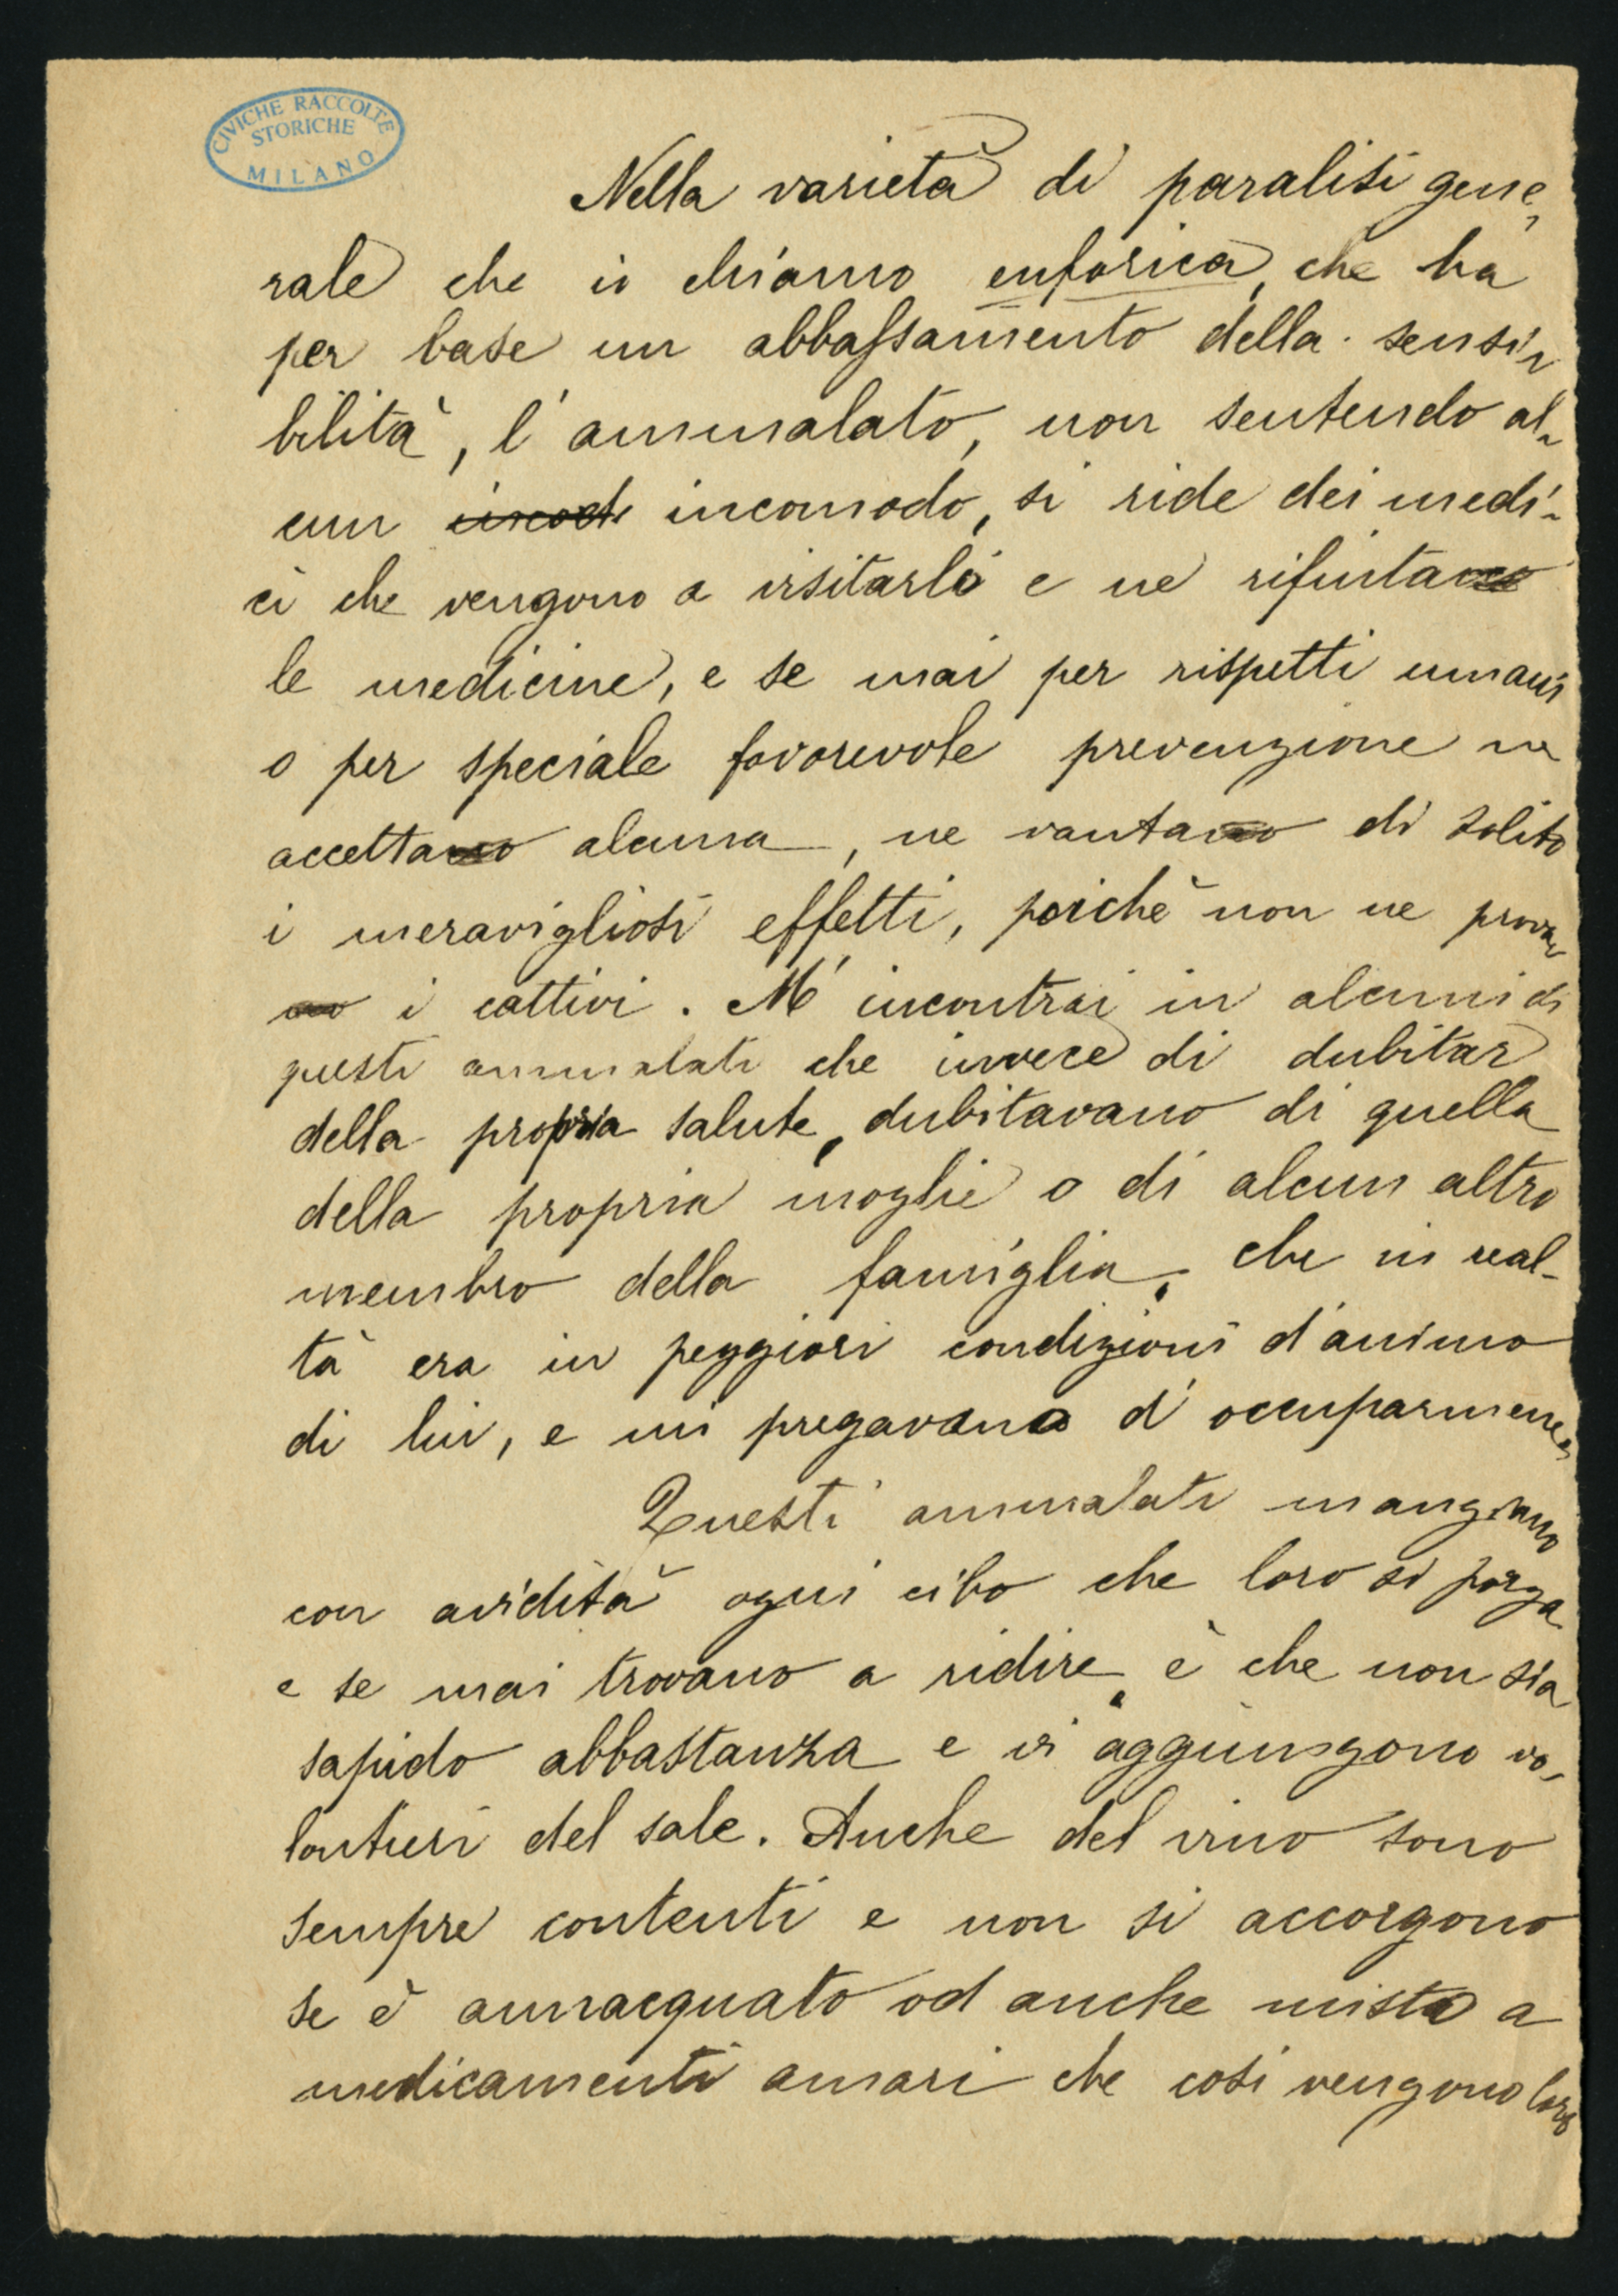 CIVICHE RACCOLTE
STORICHE
MILANO
Nella varietà di paralisi gene-
rale che io chiamo euforica, che ha
per base un abbassamento della sensi-
bilità, l'ammalato, non sentendo al-
cun incomodo, si ride dei medi-
ci che vengono a visitarlo e ne rifiuta
le medicine, e se mai per rispetti umani
o per speciale favorevole prevenzione ne
accetta alcuna, ne vanta di solito
i meravigliosi effetti, poichè non ne prova
i cattivi. M'incontrai in alcuni di
questi ammalati che invece di dubitar
della propria salute, dubitavano di quella
della propria moglie o di alcun altro
membro della famiglia, che in real-
tà era in peggiori condizioni d'animo
di lui, e mi pregavano d'occuparmene.
Questi ammalati mangiano
con avidità ogni cibo che loro si porga
e se mai trovano a ridire, è che non sia
sapido abbastanza e vi aggiungono vo-
lontieri del sale. Anche del vino sono
sempre contenti e non si accorgono
se è annacquato od anche misto a
medicamenti amari che così vengono loro